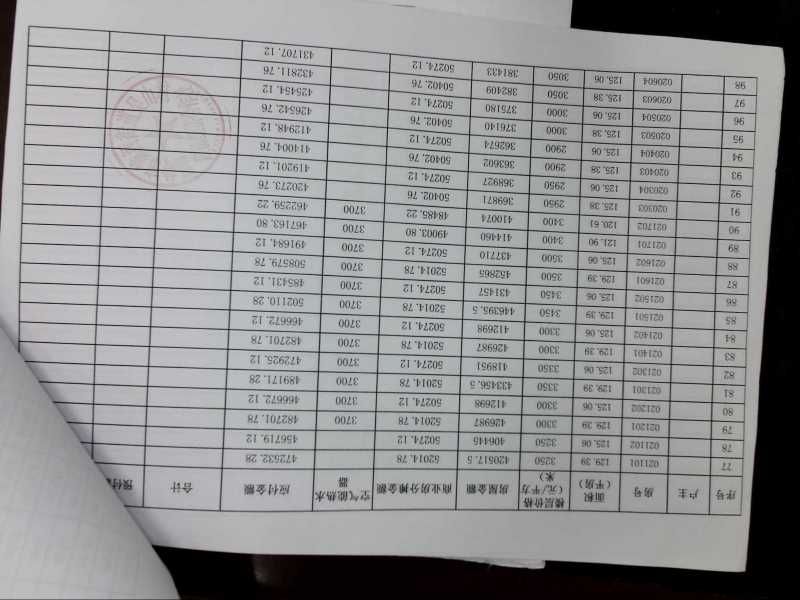 序号 户主 房号 面积(平方) 楼层价格(元/平方米) 房屋金额 商业房分摊金额 空气能热水器 应付金额 合计 预付
77 021101 129.39 3250 420517.5 52014.78 472532.28
78 021102 125.06 3250 406445 50274.12 456719.12
79 021201 129.39 3300 426987 52014.78 3700 482701.78
80 021202 125.06 3300 412698 50274.12 3700 466672.12
81 021301 129.39 3350 433456.5 52014.78 3700 489171.28
82 021302 125.06 3350 418951 50274.12 3700 472925.12
83 021401 129.39 3300 426987 52014.78 3700 482701.78
84 021402 125.06 3300 412698 50274.12 3700 466672.12
85 021501 129.39 3450 446395.5 52014.78 3700 502110.28
86 021502 125.06 3450 431457 50274.12 3700 485431.12
87 021601 129.39 3500 452865 52014.78 3700 508579.78
88 021602 125.06 3500 437710 50274.12 3700 491684.12
89 021701 121.90 3400 414460 49003.80 3700 467163.80
90 021702 120.61 3400 410074 48485.22 3700 462259.22
91 020303 125.38 2950 369871 50402.76 420273.76
92 020304 125.06 2950 368927 50274.12 419201.12
93 020403 125.38 2900 363602 50402.76 414004.76
94 020404 125.06 2900 362674 50274.12 412948.12
95 020503 125.38 3000 376140 50402.76 426542.76
96 020504 125.06 3000 375180 50274.12 425454.12
97 020603 125.38 3050 382409 50402.76 432811.76
98 020604 125.06 3050 381433 50274.12 431707.12